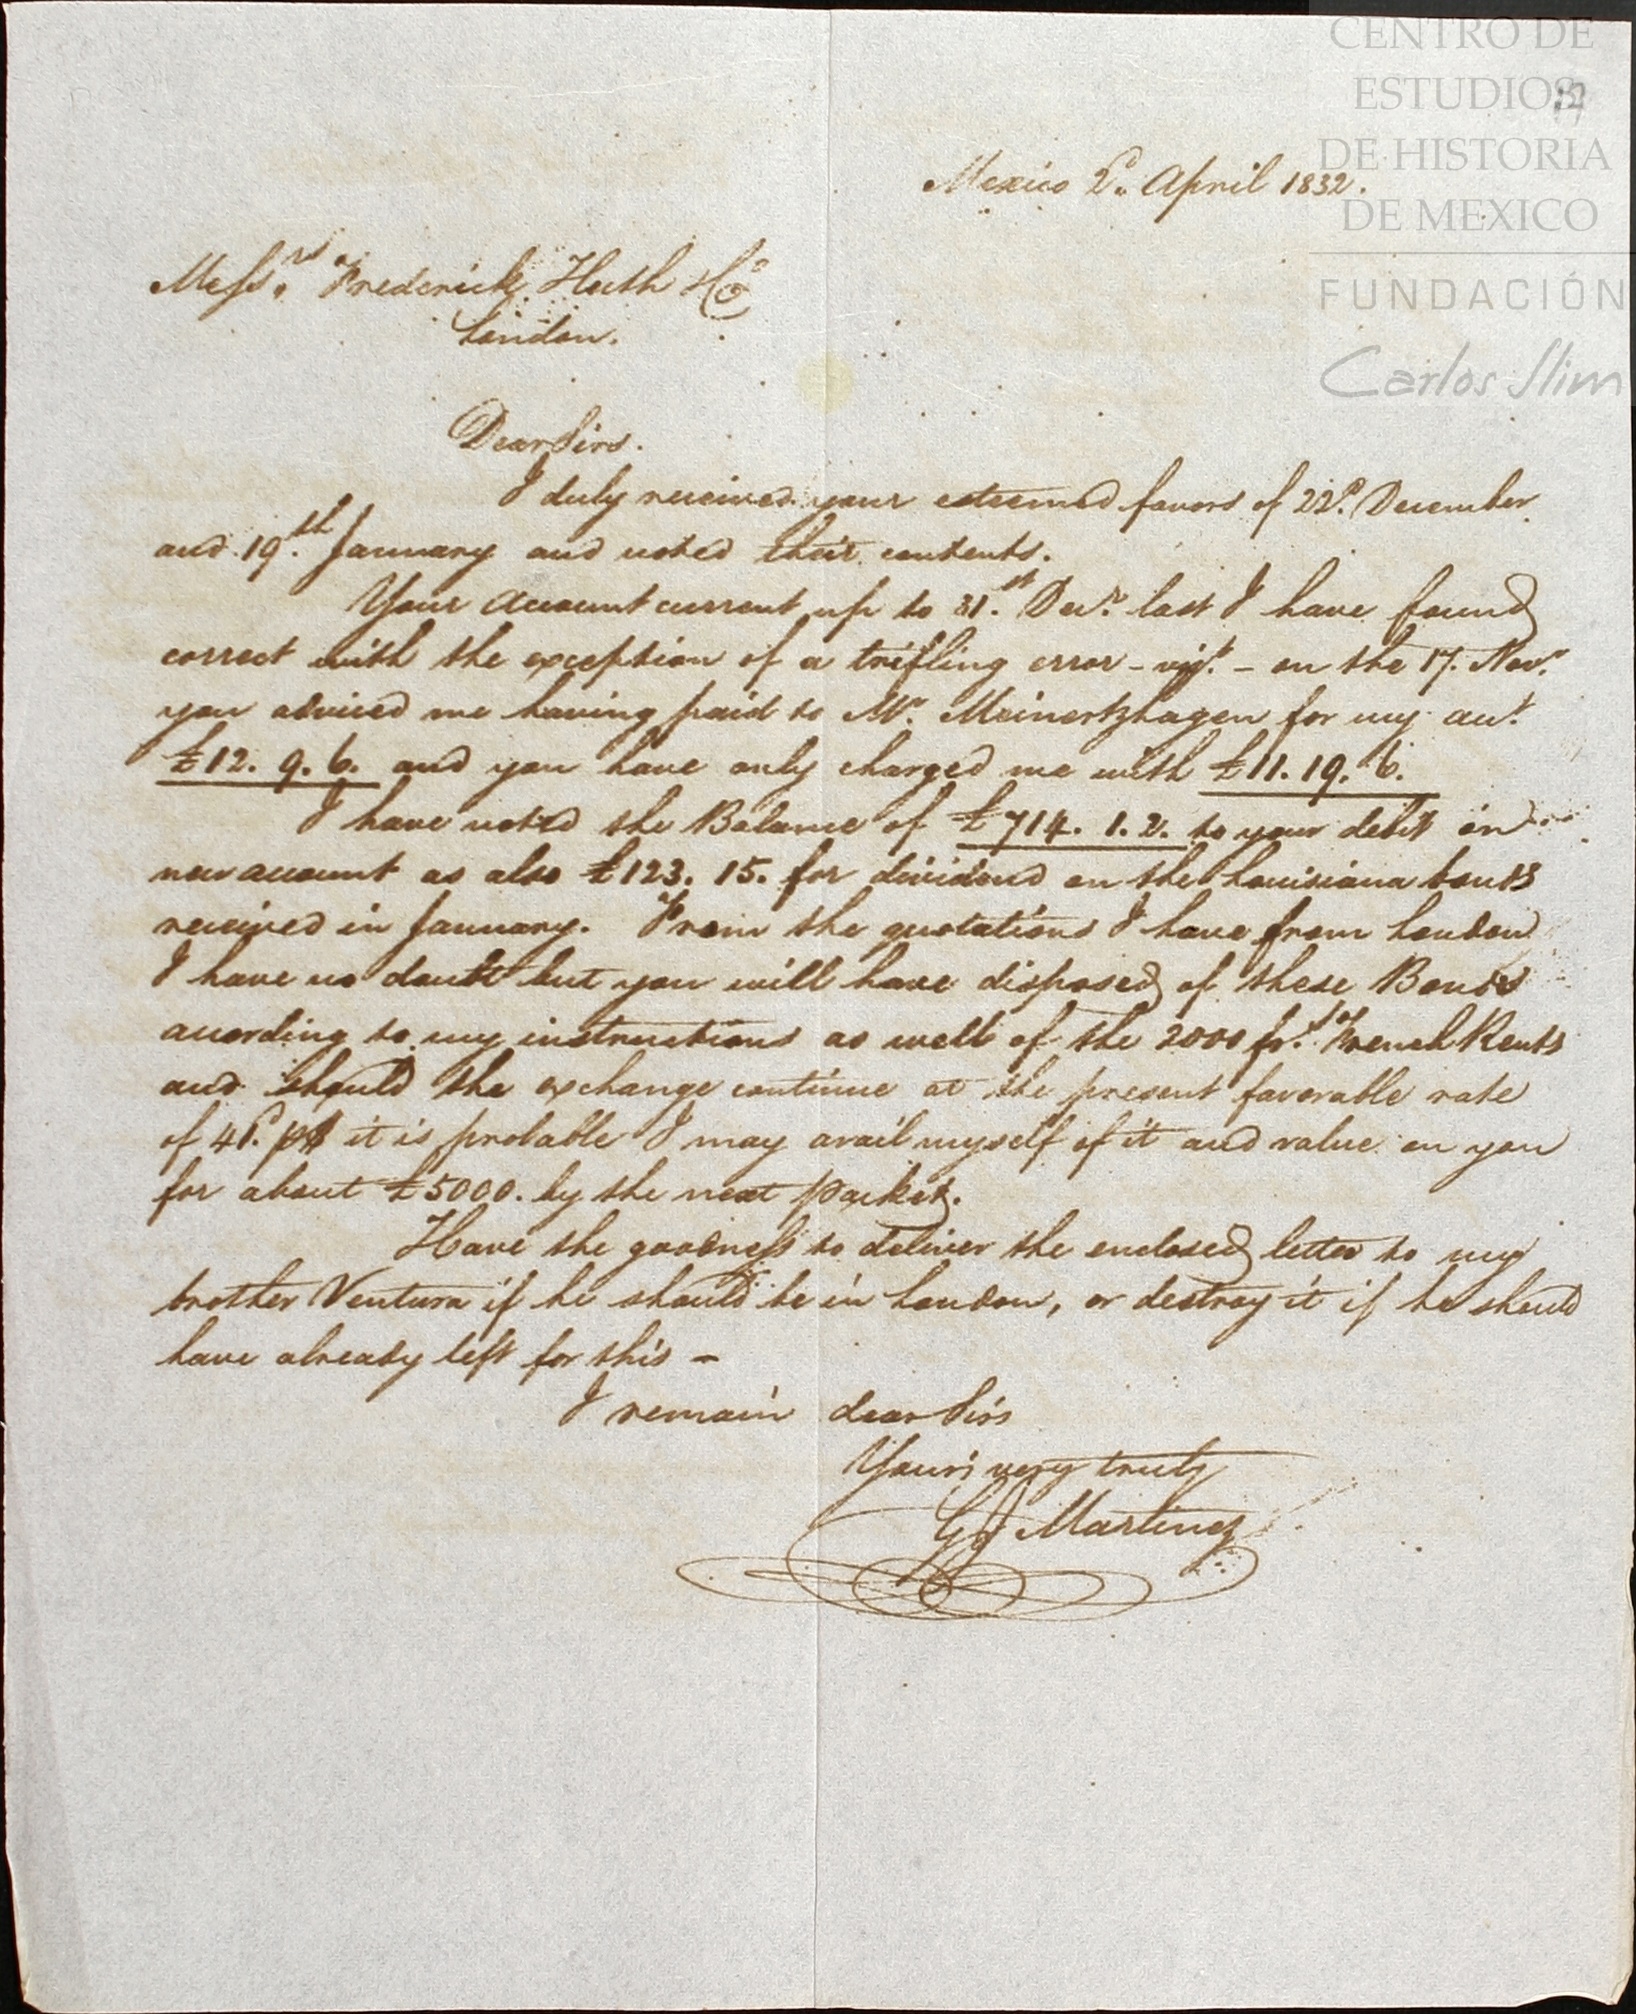 CENTRO DE
ESTUDIOS
DE HISTORIA
DE MEXICO
FUNDACIÓN
Carlos Slim
Mexico 2d. April 1832.
Messrs. Frederick Huth & Co
London.
Dear Sirs.
I duly received your esteemed favors of 22d. December
and 19th. January and noted their contents.
Your Account current up to 31.st Decr. last I have found
correct with the exception of a trifling error - vizt. - on the 17. Novr.
you adviced me having paid to Mr. Meinertzhagen for my acct.
£12. 9. 6. and you have only charged me with £11. 19. 6.
I have noted the Balance of £714. 1. 2. to your debit in
new account as also £123. 15. for dividend on the Louisiana bonds
received in January. From the quotations I have from London
I have no doubt but you will have disposed of these Bonds
acording to my instructions as well of the 2000 frs. French Rents
and should the exchange continue at the present favorable rate
of 46d. p$ it is probable I may avail myself of it and value on you
for about £5000. by the next packet.
Have the goodness to deliver the enclosed letter to my
brother Ventura if he should be in London, or destroy it if he should
have already left for this -
I remain dear Sirs
Yours very truly
Martinez